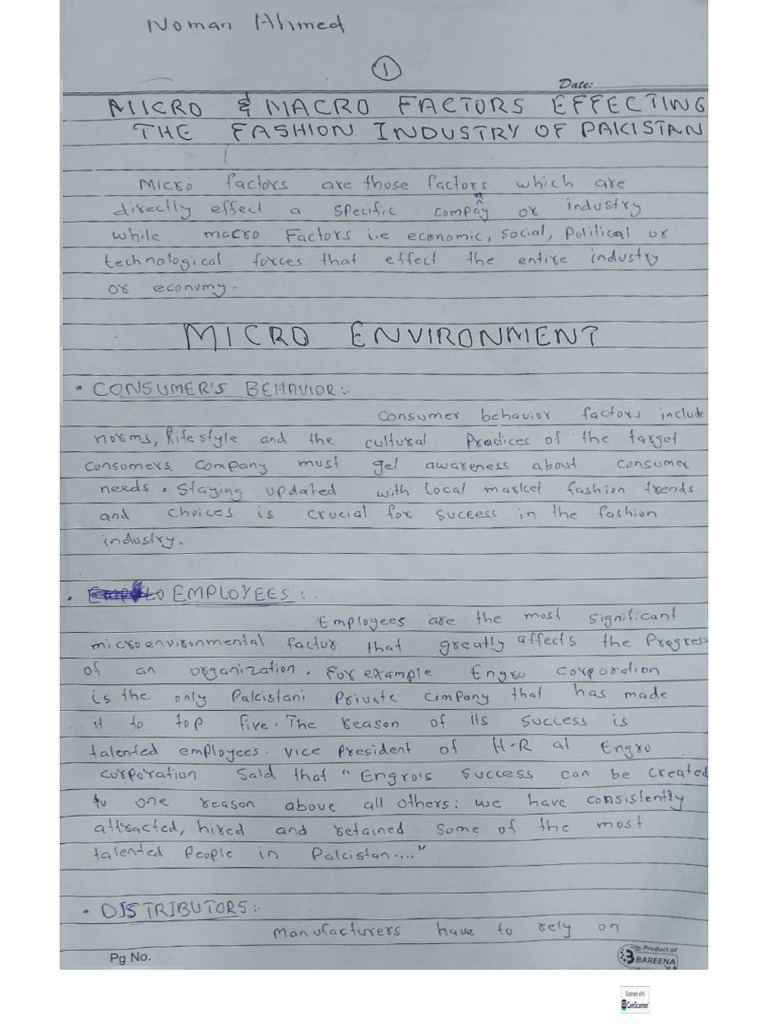 Noman Ahmed
1
Date:
MICRO & MACRO FACTORS EFFECTING
THE FASHION INDUSTRY OF PAKISTAN
Micro factors are those factors which are
directly effect a specific compañy or industry
while macro Factors i.e economic, social, Political or
technological forces that effect the entire industry
or economy.
MICRO ENVIRONMENT
• CONSUMER'S BEHAVIOR:-
Consumer behavior factors include
norms, lifestyle and the cultural Practices of the target
consumers. Company must get awareness about consumer
needs, staying updated with local market fashion trends
and choices is crucial for success in the fashion
industry.
• EMPLOYEES:-
Employees are the most significant
microenvironmental factor that greatly affects the Progress
of an organization. For example Engro corporation
is the only Pakistani Private company that has made
it to top five. The reason of its success is
talented employees. vice President of H-R at Engro
corporation Said that "Engro's success can be created
to one reason above all others: we have consistently
attracted, hired and retained some of the most
talented People in Pakistan...."
• DISTRIBUTORS:-
Manufacturers have to rely on
Pg No.
Product of
BAREENA
Scanned with
CamScanner